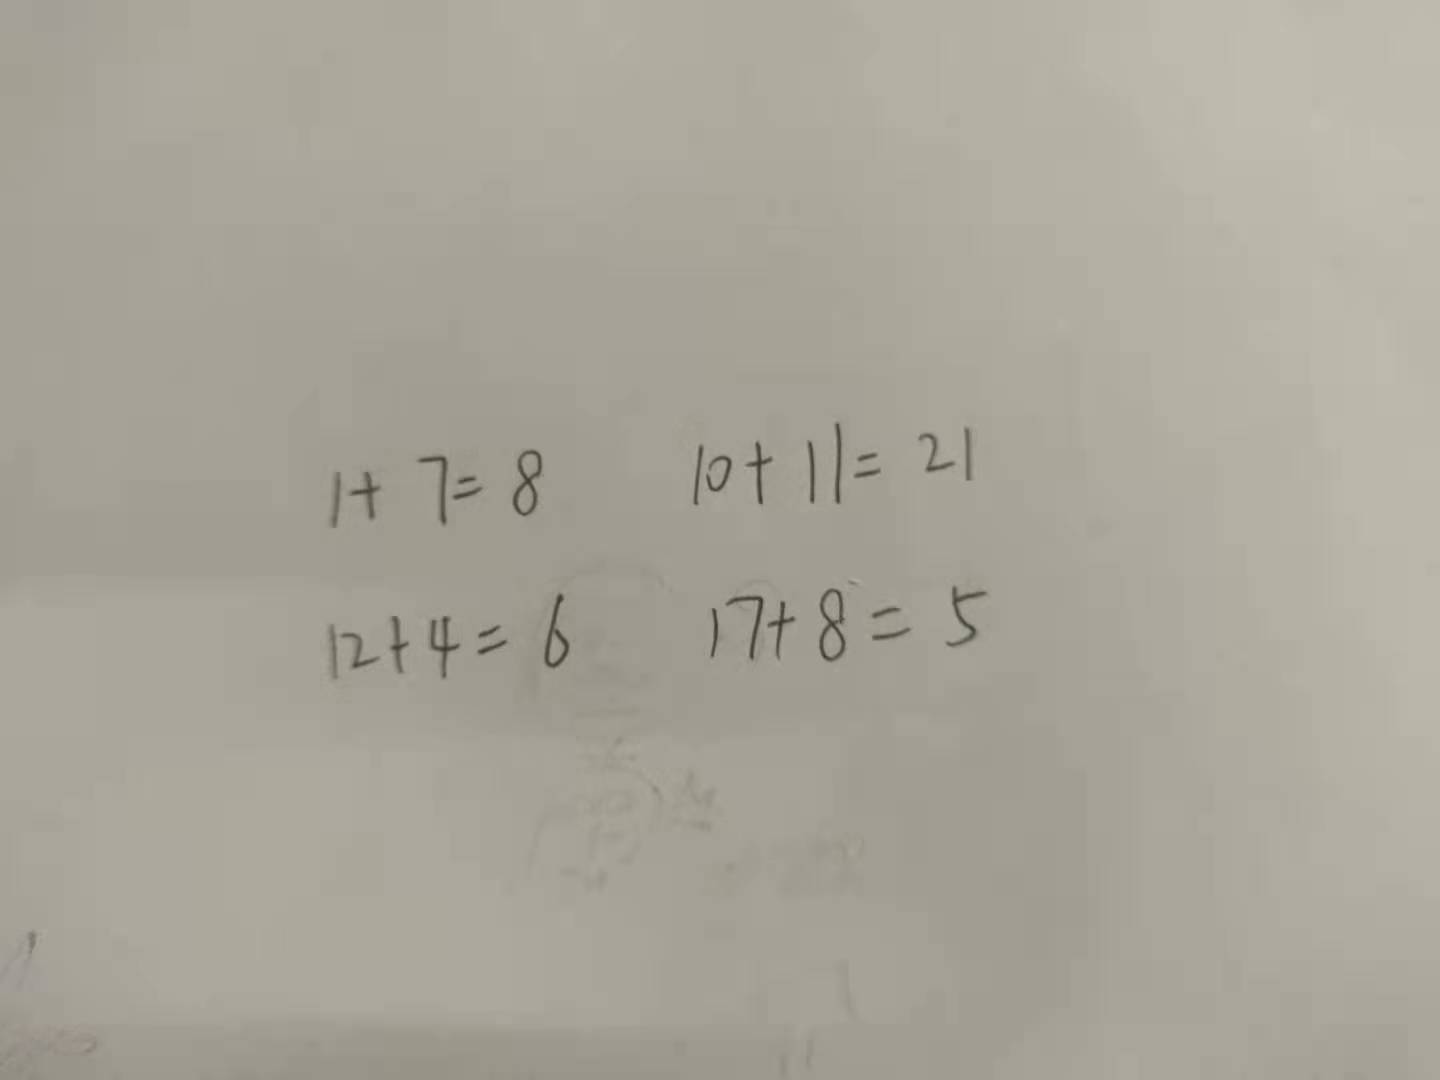 1+7=8 10+11=21
12+4=6 17+8=5